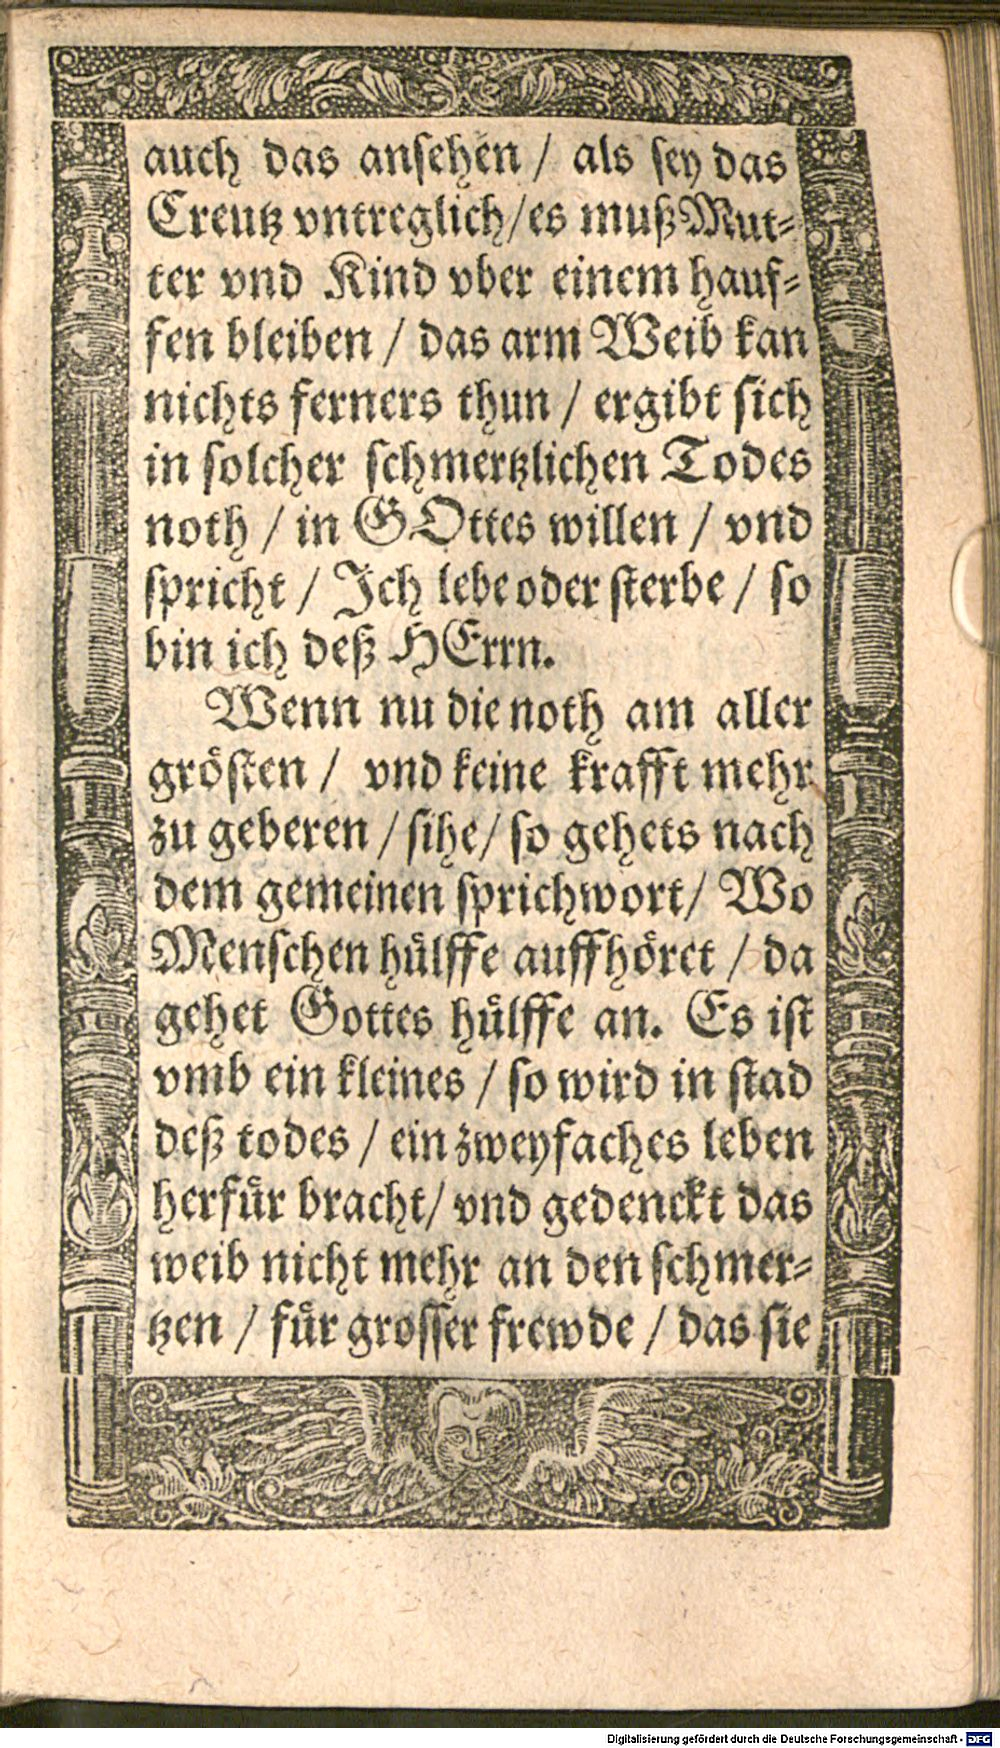 auch das ansehen / als sey das
Creutz vntreglich / es muß Mut-
ter vnd Kind vber einem hauf-
fen bleiben / das arm Weib kan
nichts ferners thun / ergibt sich
in solcher schmertzlichen Todes
noth / in GOttes willen / vnd
spricht / Ich lebe oder sterbe / so
bin ich deß HErrn.
Wenn nu die noth am aller
grösten / vnd keine krafft mehr
zu geberen / sihe / so gehets nach
dem gemeinen sprichwort / Wo
Menschen hülffe auffhöret / da
gehet Gottes hülffe an. Es ist
vmb ein kleines / so wird in stad
deß todes / ein zweyfaches leben
herfür bracht / vnd gedenckt das
weib nicht mehr an den schmer-
tzen / für grosser frewde / das sie
Digitalisierung gefördert durch die Deutsche Forschungsgemeinschaft - DFG